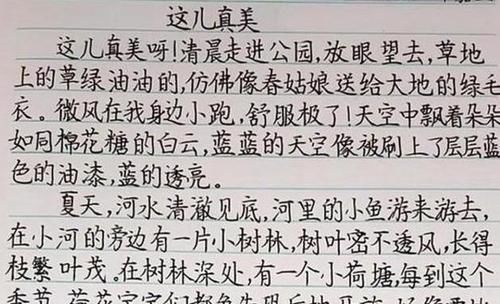 这儿真美
这儿真美呀!清晨走进公园,放眼望去,草地
上的草绿油油的,仿佛像春姑娘送给大地的绿毛
衣。微风在我身边小跑,舒服极了!天空中飘着朵朵
如同棉花糖的白云,蓝蓝的天空像被刷上了层层蓝
色的油漆,蓝的透亮。
夏天,河水清澈见底,河里的小鱼游来游去,
在小河的旁边有一片小树林,树叶密不透风,长得
枝繁叶茂。在树林深处,有一个小荷塘,每到这个
季节,荷花